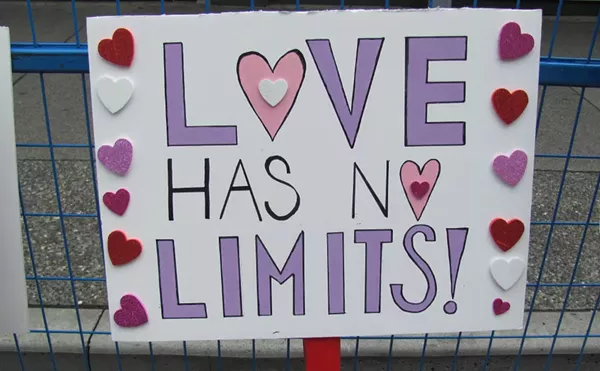 LOVE
HAS NO
LIMITS!